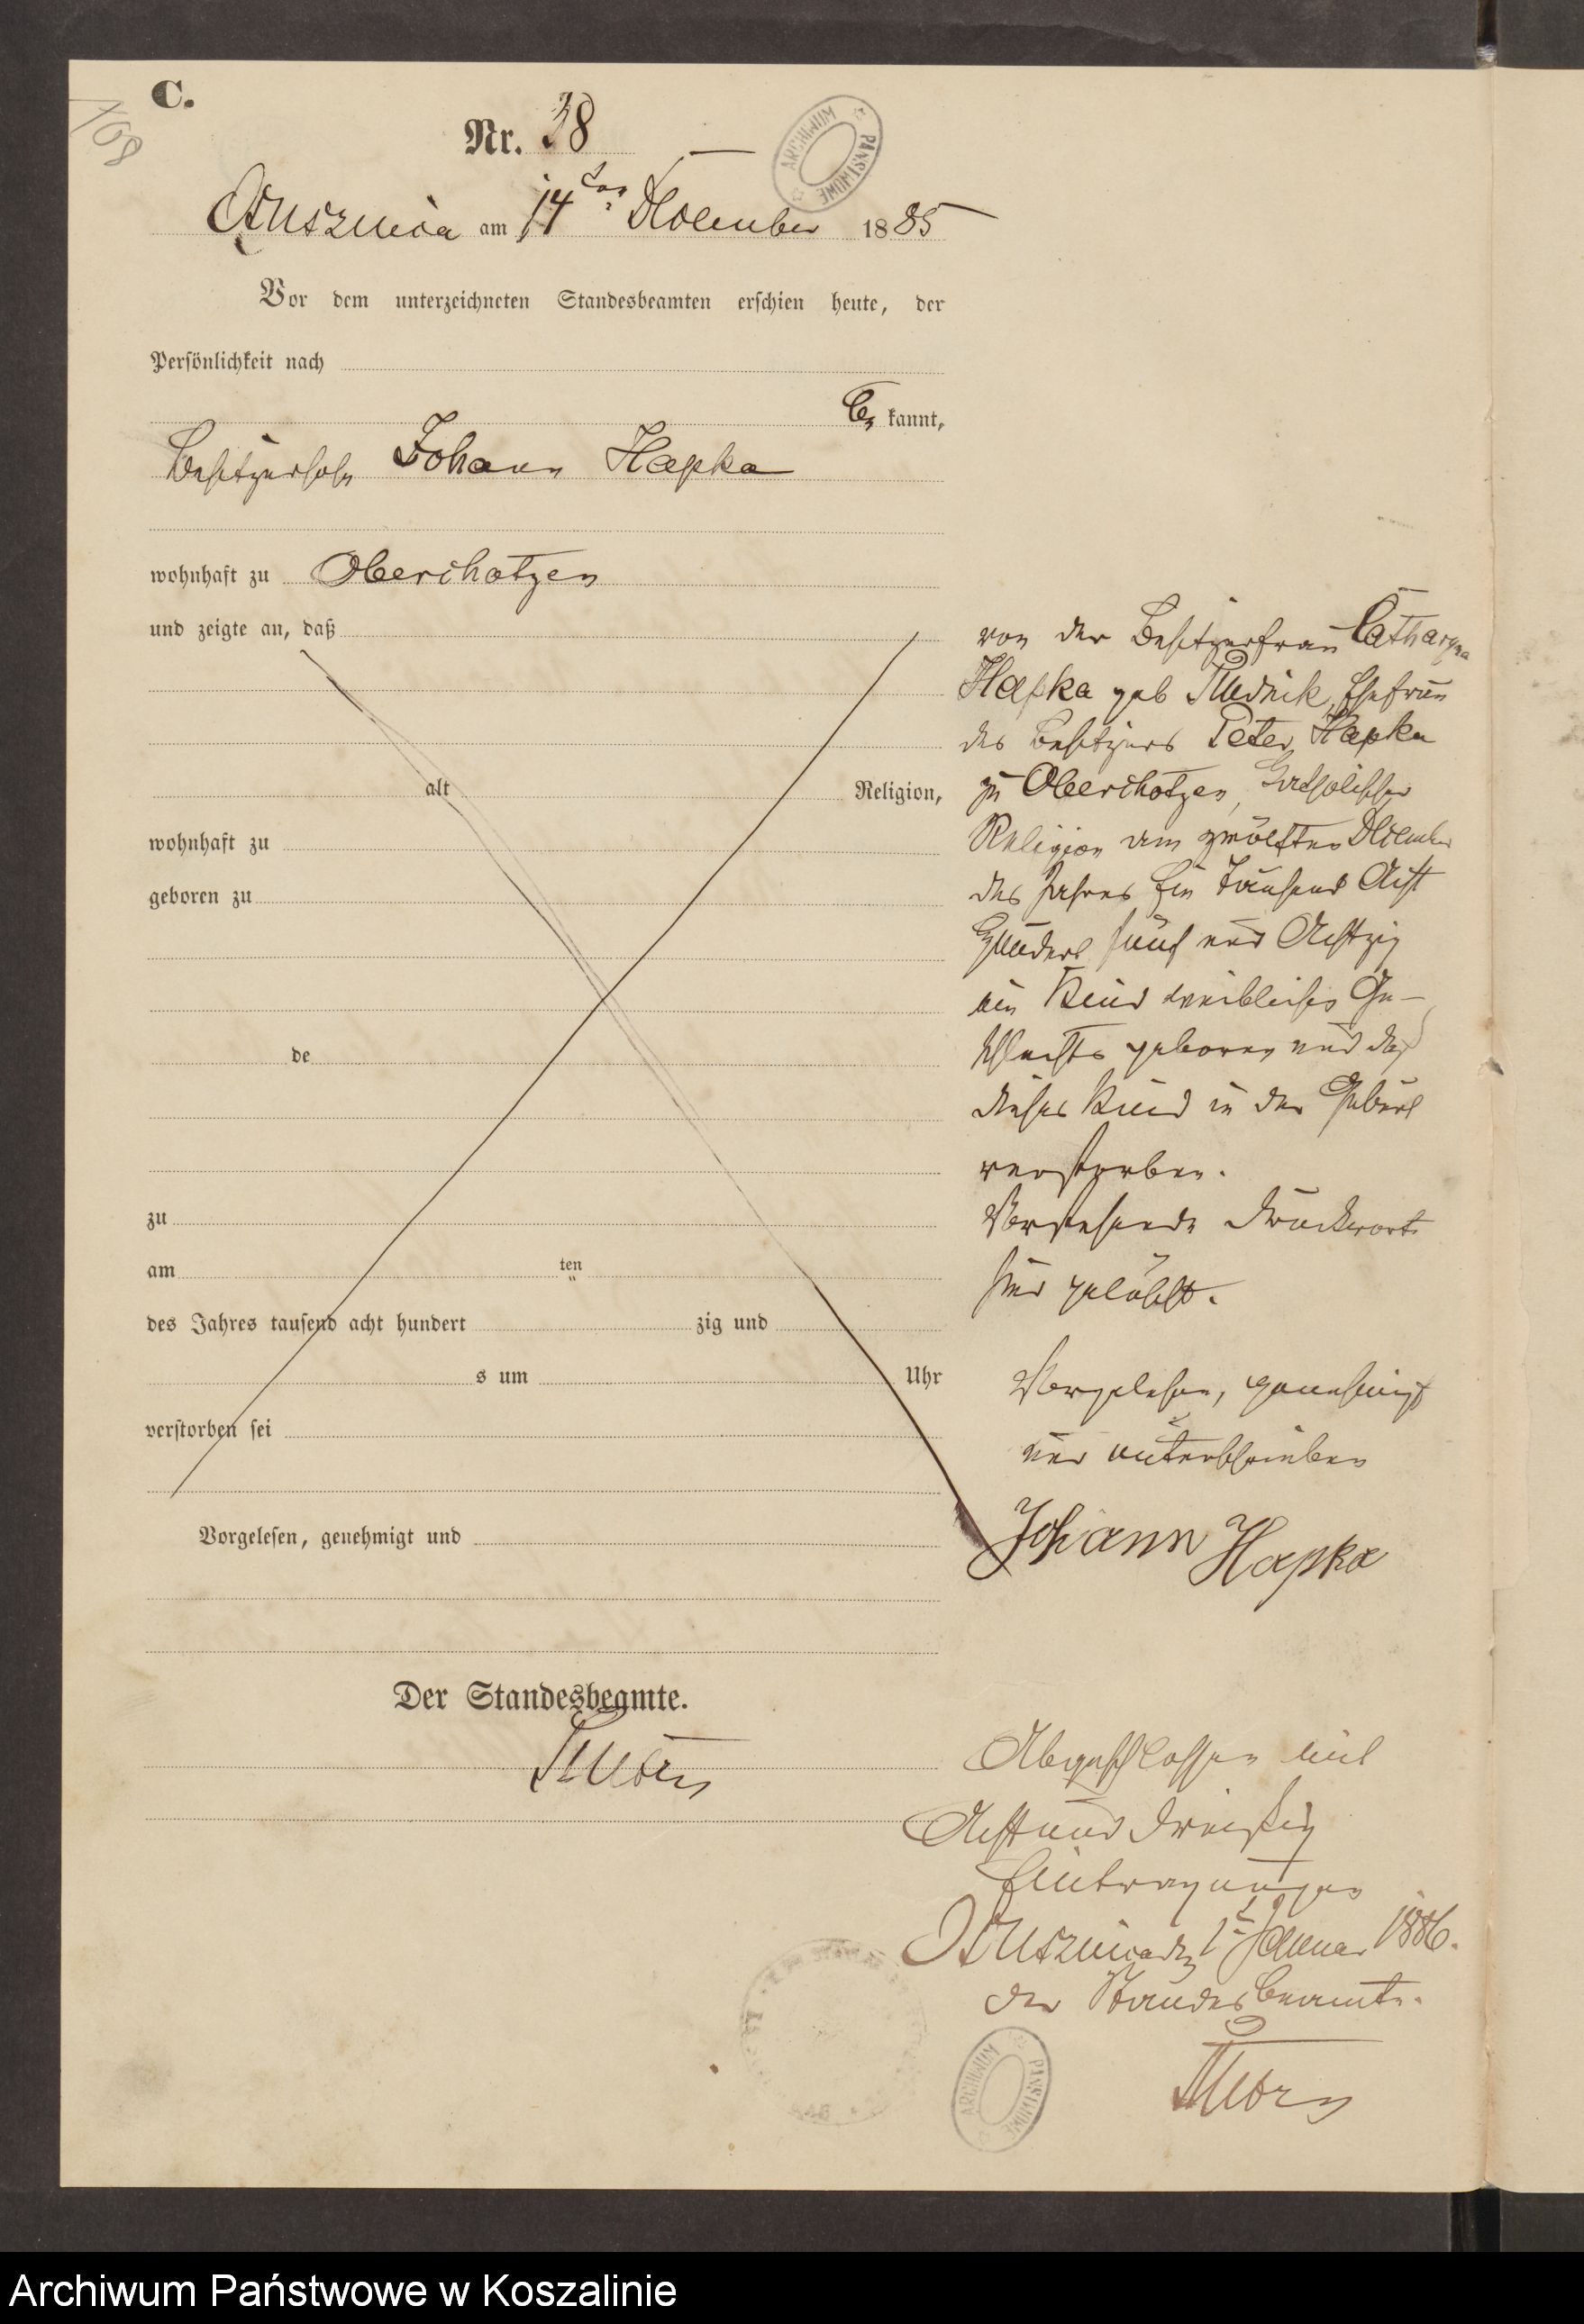 C.
109
Nr. 38
ARCHIWUM PAŃSTWOWE
am 14ten Dezember 1885
Vor dem unterzeichneten Standesbeamten erschien heute, der
Persönlichkeit nach
be kannt,
Besitzersohn Johann Hapka
wohnhaft zu Oberchotzen
und zeigte an, daß
alt Religion,
wohnhaft zu
geboren zu
de
zu
am ten
des Jahres tausend acht hundert zig und
s um Uhr
verstorben sei
Vorgelesen, genehmigt und
Der Standesbeamte.
von der Besitzerfrau Catharyna
Hapka geb Rudnik, Ehefrau
des Besitzers Peter Hapka
zu Oberchotzen, katholischer
Religion am zwölften Dezember
des Jahres Ein Tausend Acht
Hundert fünf und Achtzig
ein Kind weiblichen Ge-
schlechts geboren und daß
dieses Kind in der Geburt
verstorben.
Vorstehende Druckworte
sind gelöscht.
Vorgelesen, genehmigt
und unterschrieben
Johann Hapka
Abgeschlossen mit
Acht und dreißig
Eintragungen
den 1t Januar 1886.
der Standesbeamte.
ARCHIWUM PAŃSTWOWE
Archiwum Państwowe w Koszalinie